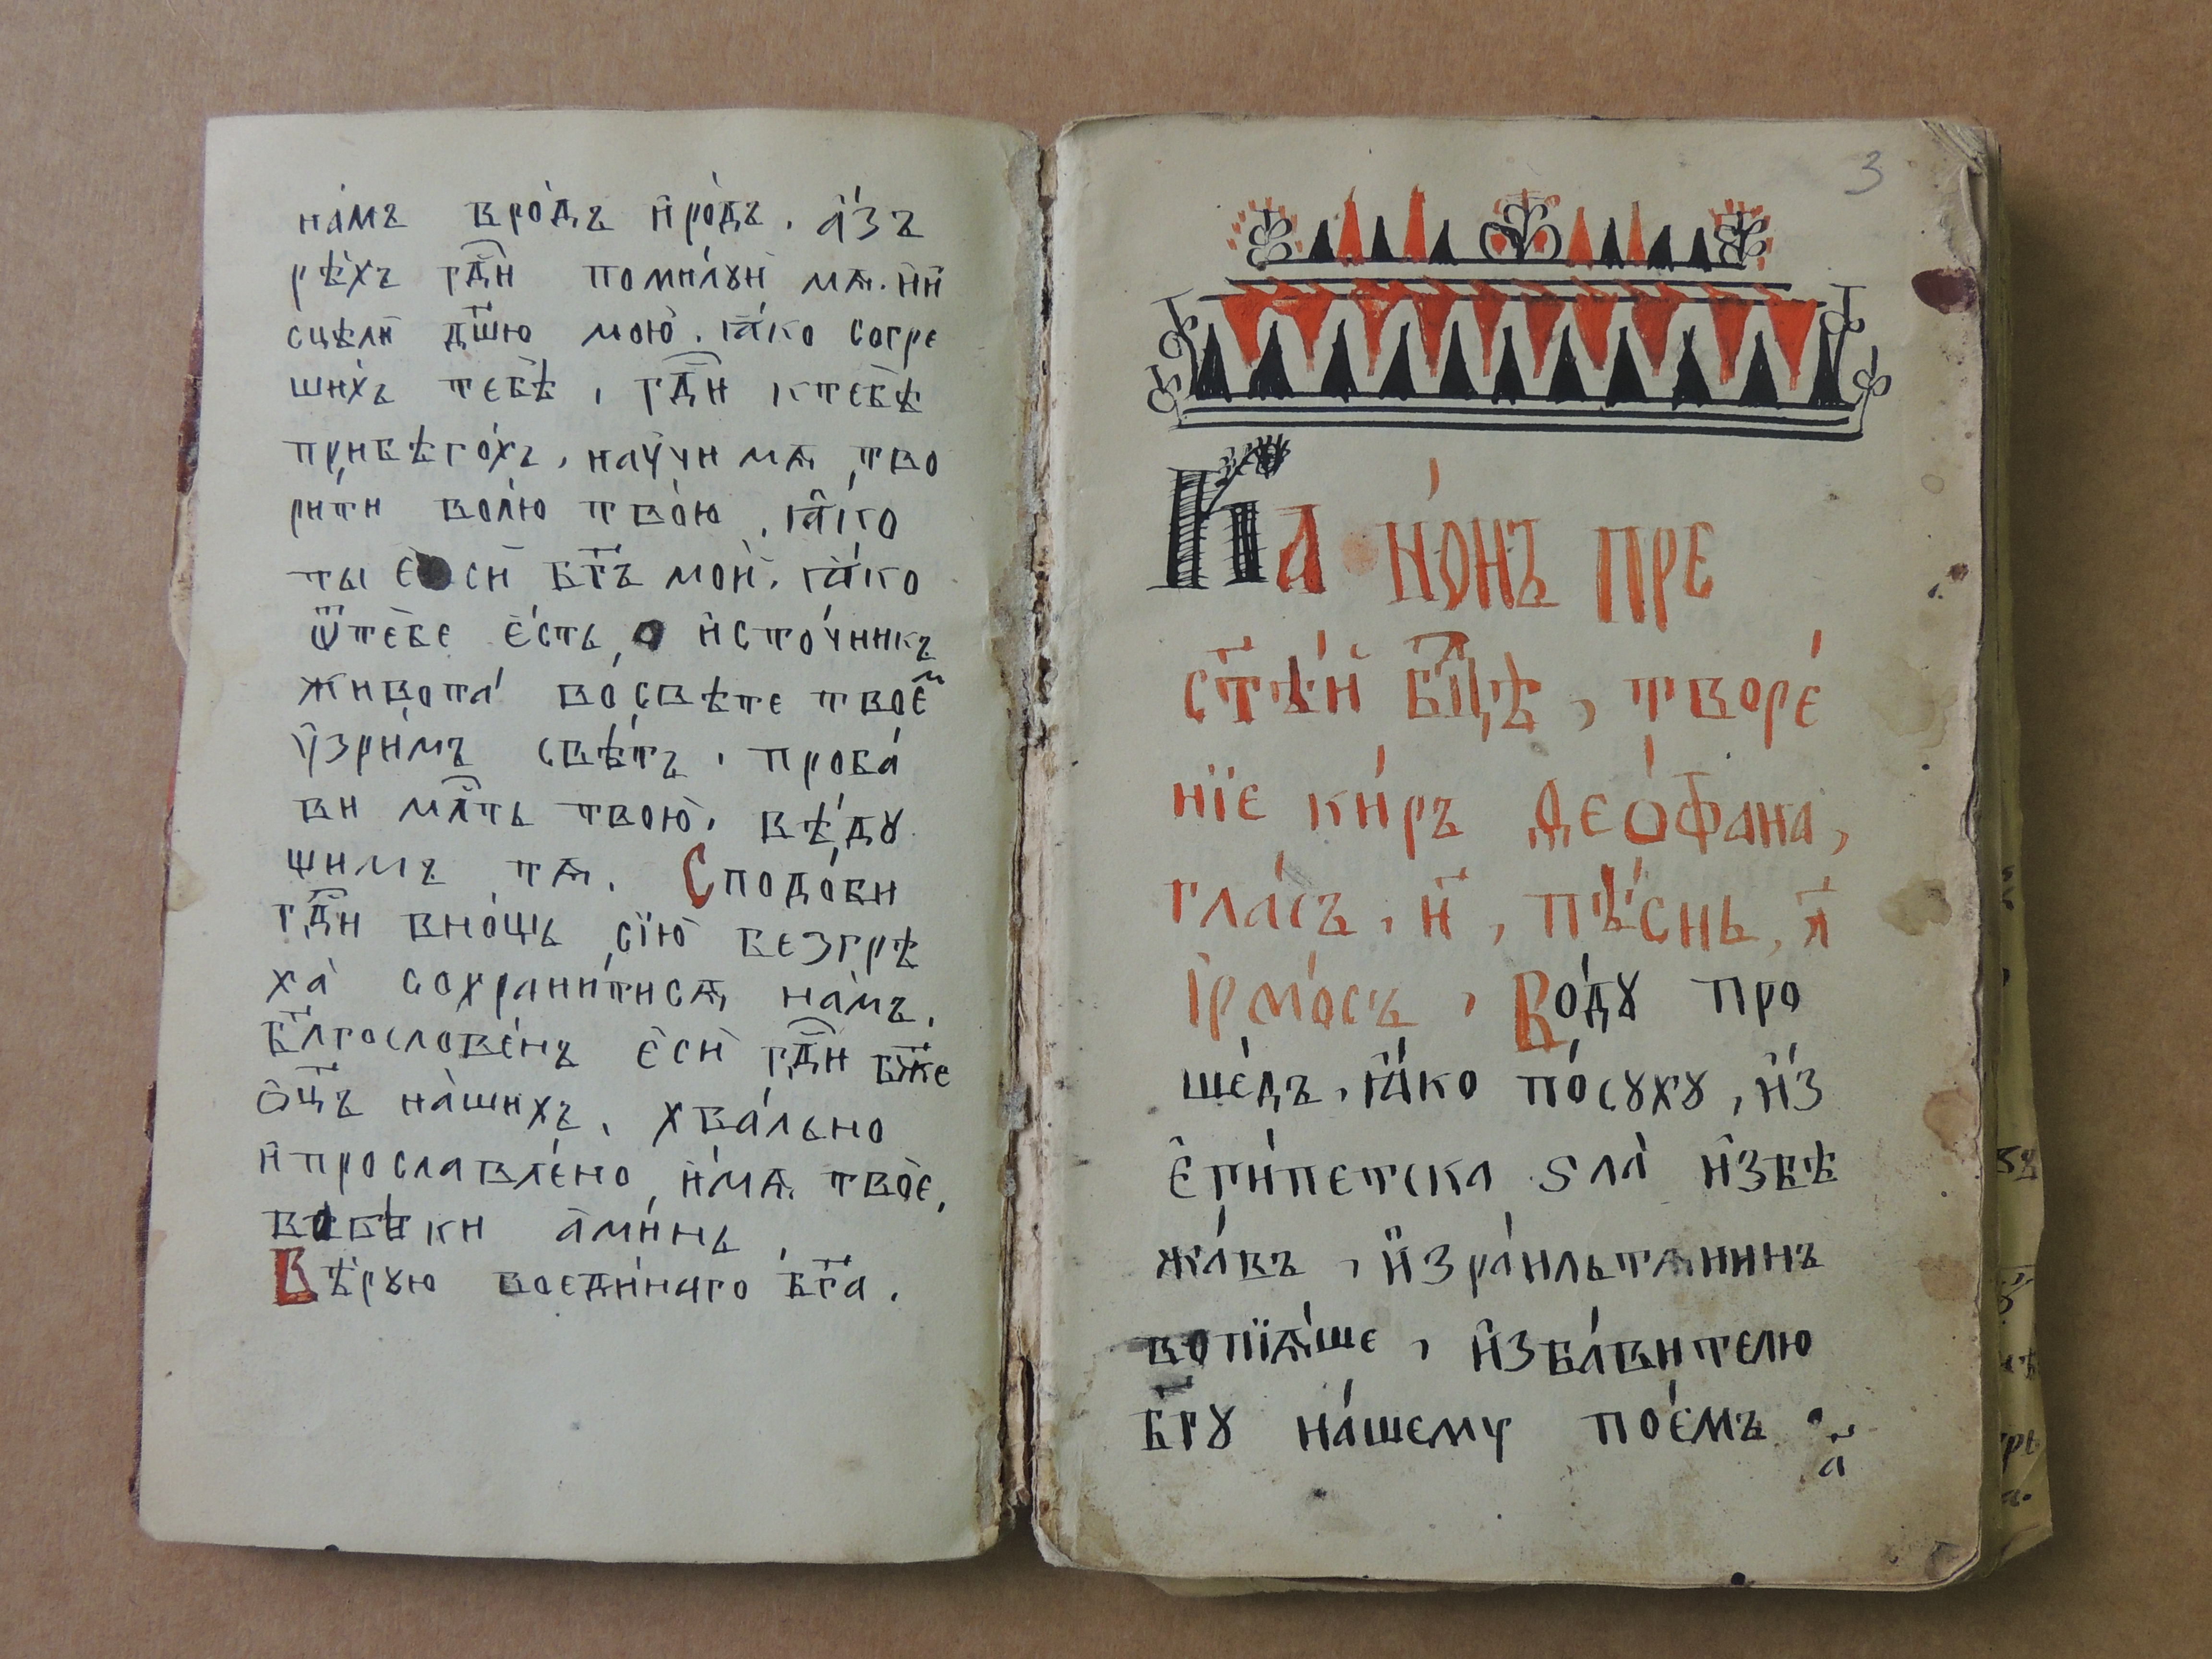 на́мъ вро́дъ и҆ро́дъ. а҆́зъ
рѣ́хъ гд҇и помилꙋи мѧ. ни
сцѣли дш҃ю мою̀. ꙗ҆́ко согре
ши́хъ тебѣ̀, гд҇и ктебѣ̀
прибѣго́хъ, научи мѧ тво
рити волю твою, ꙗ҆́ко
ты є҆сѝ бг҃ъ мои. ꙗ҆́ко
ѿтебе є҆́сть, и҆сто́чникъ
живота̀ восвѣте твоеⷨ
у҆́зримъ свѣ́тъ. проба́
ви млⷭ҇ть твою̀. вѣ́дꙋ
щимъ тѧ. Сподо́би
гд҇и вно́щь сїю̀ безгрѣ
ха̀ сохрани́тисѧ на́мъ.
бл҃гослове́нъ є҆сѝ гд҇и бж҃е
о҆ц҃ъ на́шихъ. хва́льно
и҆прославле́но и҆́мѧ твоѐ.
вовѣки а҆ми́нь.
Вѣ́рꙋю воеди́наго бг҃а.
3
Кано́нъ пре
ст҃ѣ́й бцⷣѣ, творе́
нїе ки́ръ ѳео́фана,
гла́съ, и҃, пѣ́снь, а҃
і҆рмо́съ, Во́дꙋ про
ше́дъ, ꙗ҆́ко по́сꙋхꙋ, и҆́з
є҆ги́петска ѕла̀ и҆збѣ
жа́въ, и҆зра́ильтѧнинъ
вопїѧ́ше, и҆зба́вителю
бг҃ꙋ на́шему пое́мъ
а